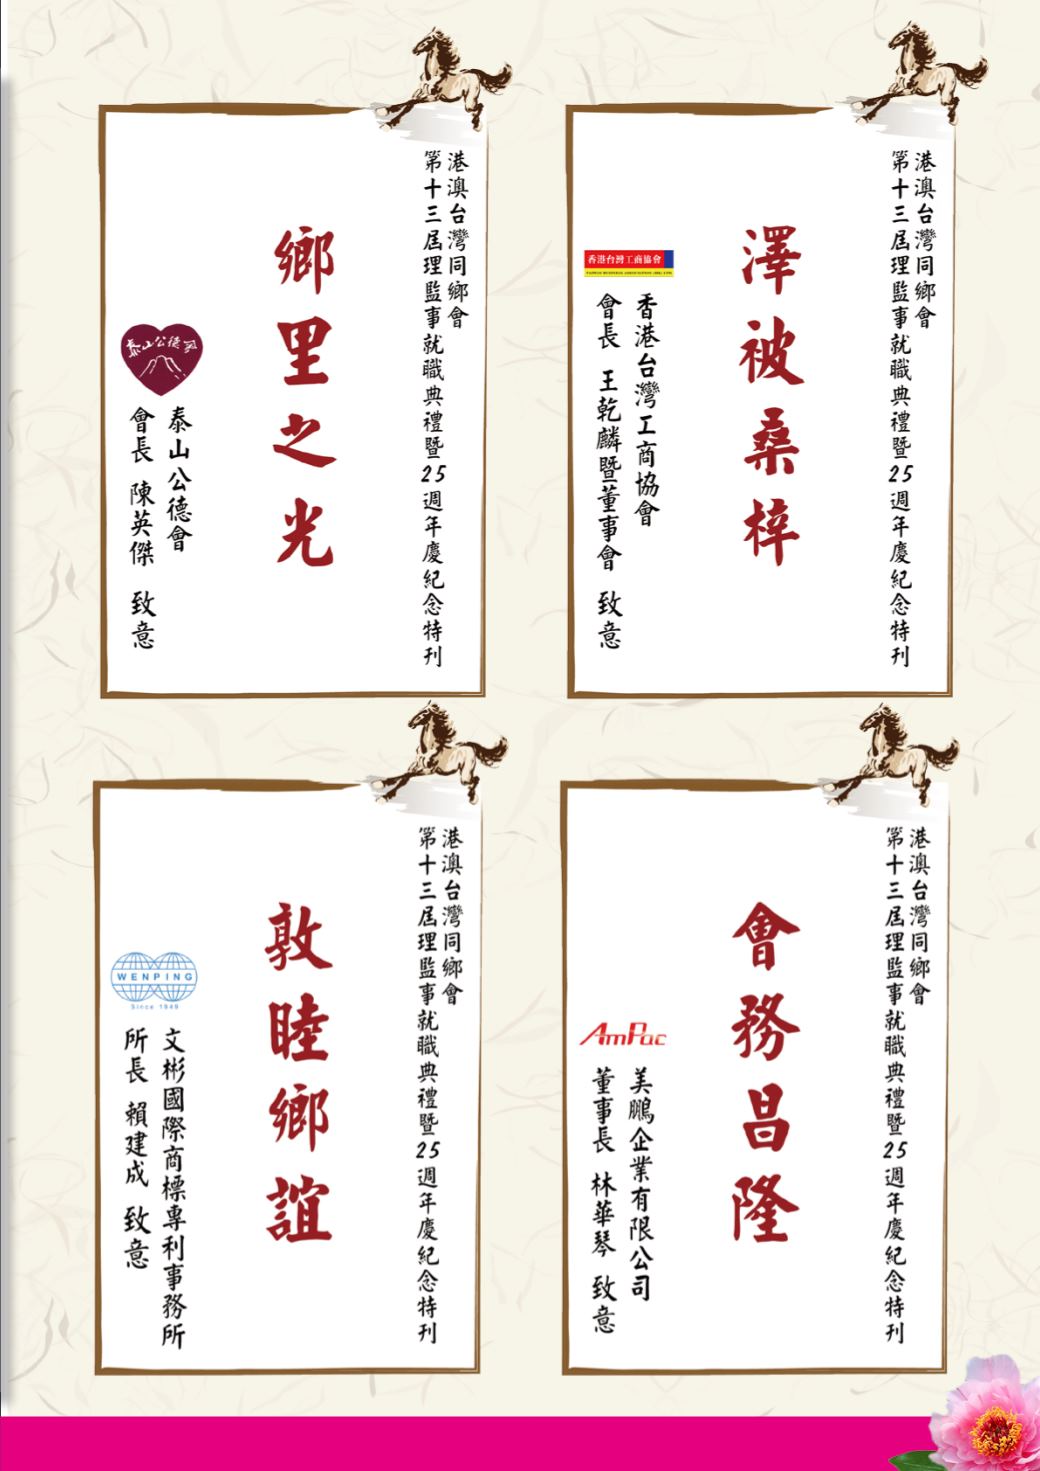 港澳台灣同鄉會
第十三屆理監事就職典禮暨25週年慶紀念特刊
澤被桑梓
香港台灣工商協會
香港台灣工商協會
會長 王乾麟暨董事會 致意
港澳台灣同鄉會
第十三屆理監事就職典禮暨25週年慶紀念特刊
鄉里之光
泰山公德會
泰山公德會
會長 陳英傑 致意
港澳台灣同鄉會
第十三屆理監事就職典禮暨25週年慶紀念特刊
會務昌隆
AmPac
美鵬企業有限公司
董事長 林華琴 致意
港澳台灣同鄉會
第十三屆理監事就職典禮暨25週年慶紀念特刊
敦睦鄉誼
WENPING
Since 1949
文彬國際商標專利事務所
所長 賴建成 致意